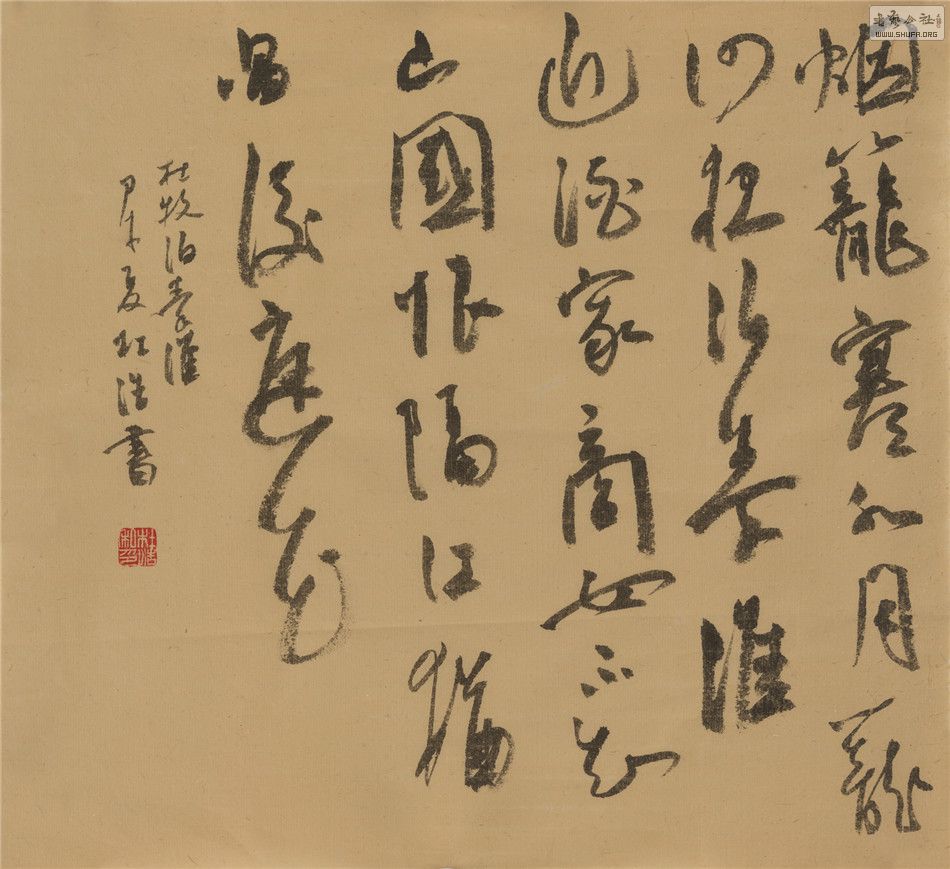 烟籠寒水月籠
沙夜泊秦淮
近酒家商女不知
亡國恨隔江猶
唱後庭花
杜牧泊秦淮
甲午夏杜浩書
WWW.SHUFA.ORG